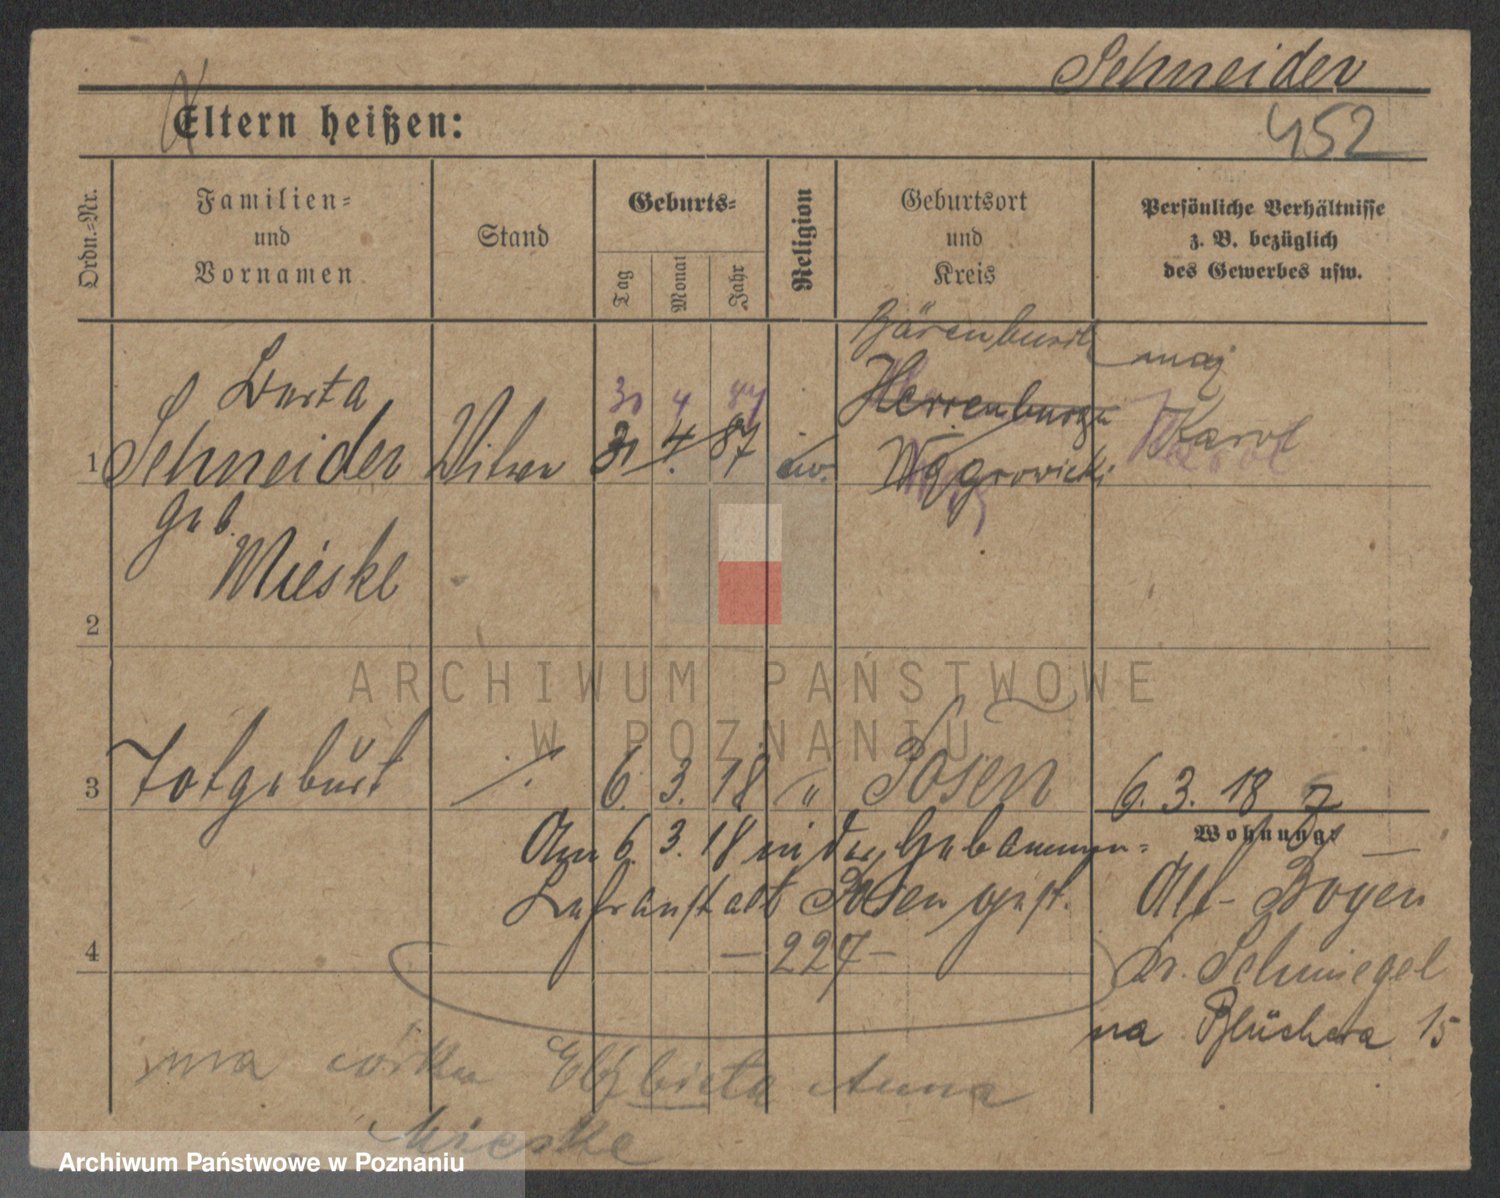 Schneider
452
Eltern heißen:
Ordn.=Nr.
Familien=
und
Vornamen
Stand
Geburts=
Tag
Monat
Jahr
Religion
Geburtsort
und
Kreis
Persönliche Verhältnisse
z. B. bezüglich
des Gewerbes usw.
30 4 87
maj
Karol
1 Schneider 30 4. 87 ev.
Herrenburg
Wągrowiecki
geb.
Mieske
2
3 Totgeburt ⁒ 6. 3. 18 " Posen 6. 3. 18
Wohnung:
Am 6. 3. 18 in der Hebammen=
Lehranstalt Posen gest.
Alt-Boyen
—227—
4
Kr. Schmiegel
na Blüchera 15
ma córkę Elżbieta Anna
Mieske
ARCHIWUM PAŃSTWOWE
W POZNANIU
Archiwum Państwowe w Poznaniu